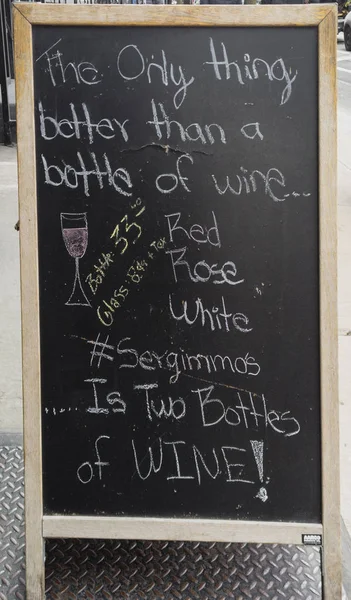 The Only thing
better than a
bottle of wine...
Bottle: 33.00
Glass: + Tax
Red
Rose
White
#Sergimmo's
..... Is Two Bottles
of WINE!
AARCO